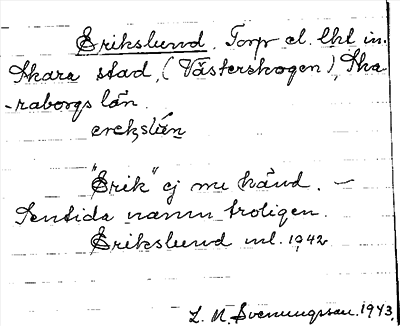 Erikslund. Torp el. lht in.
Skara stad, (Västerskogen), Ska
-raborgs län.
"Erik" ej nu känd. —
Sentida namn troligen.
Erikslund enl. 1942
L. N. Svenungsson. 1943.